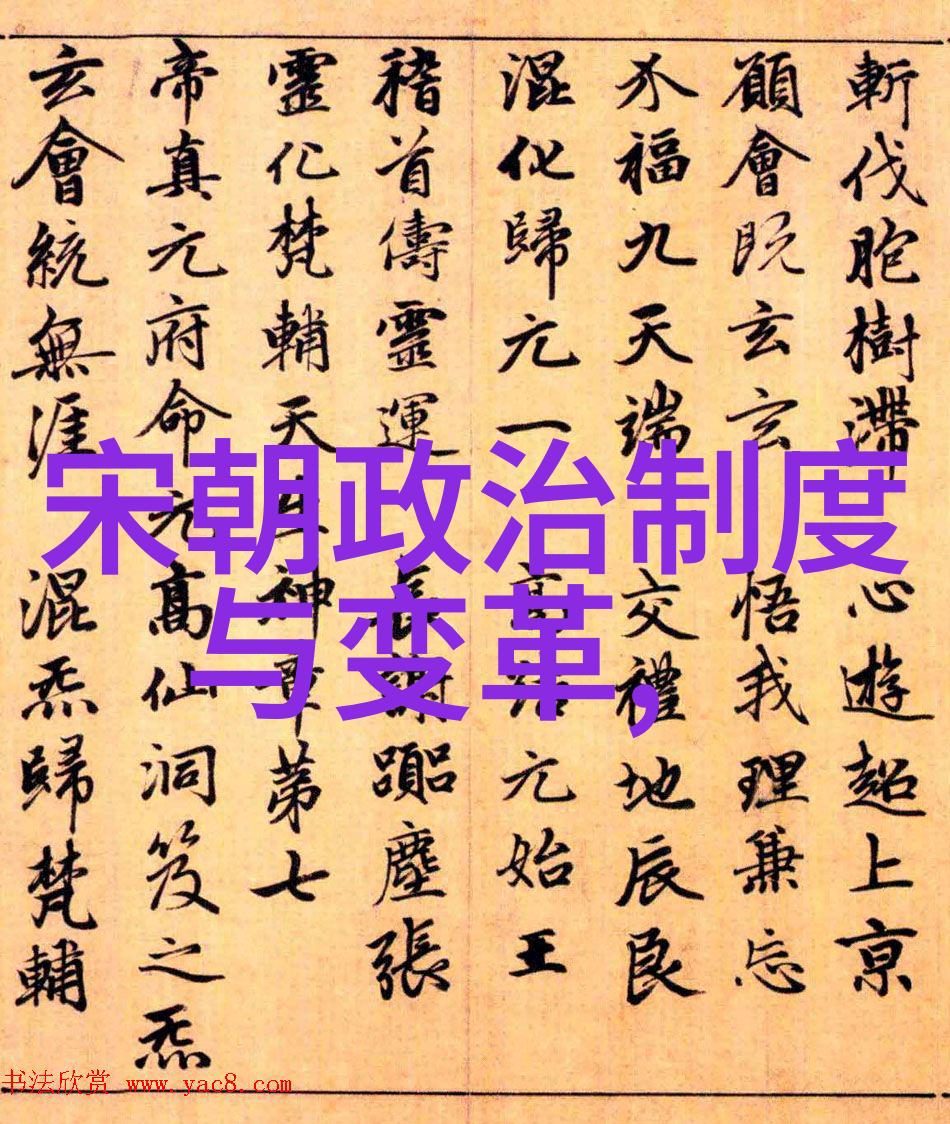 斬伐胞樹滯 心遊超上京
願會既玄玄 悟我理兼忘
介福九天端 交禮地辰良
混化歸元一 高元始王
稽首儔靈運 長謝塵張
靈化梵輔天神章第七
帝真元府命元高仙洞笈之炁
玄會統無涯 混炁歸梵輔
宋朝政治制度
与变革,
书法欣赏 www.yac8.com